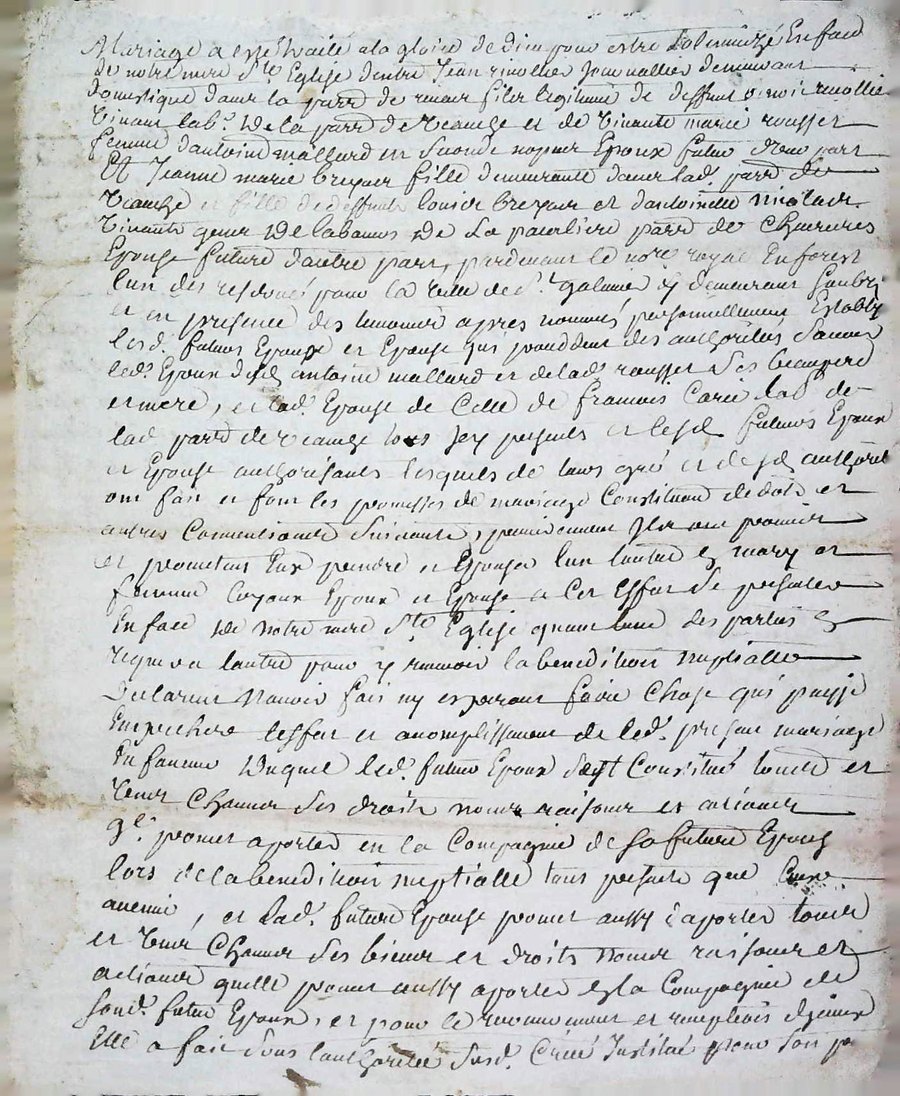 Mariage a esté traité a la gloire de dieu pour estre Solennizé En face
de notre mere Ste Eglise dentre Jean rivollier Journallier demeurant
domestique dans la parr de fils legitime de deffunt rivollier
vivant lab.r De la parr de veauche et de vivante marie rousset
femme dantoine mallard en Seconde nopces Epoux futur dune part
Et Jeanne marie breyour fille demeurante dans lad. parr de
veauche et fille de deffunt Louis breyour et dantoinette nicolas
vivants De De La parr de Chevrieres
Epouse future dautre part, pardevant le no.re royal En forest
lun des reservés pour la ville de S.t galmier y demeurant Soubz.e
et en presence des temoins apres nommés personnellement Estably
lesd. futurs Epoux et Epouse qui procedent des authorités Scavoir
led. Epoux dud. antoine mallard et de lad. rousset Ses beaupere
et mere, et lad. Epouse de Celle de francois Carié lab.r de
lad. parr de veauche tous Icy presents et lesd. futurs Epoux
et Epouse authorisants lesquels de leurs gré et desd. authorité
ont fait et font les promesses de mariage Constitution de dote et
autres Conventions Suivantes, premierement Ils ont promis
et promettent Eux prendre et Epouser lun lautre En mary et
femme loyaux Epoux et Epouse a Cet Effet Se presenter
En face De notre mere Ste Eglise quand lune des parties En
requera lautre pour y recevoir la benediction nuptialle
Declarant navoir fait ny esperant faire Chose qui puisse
Empecher leffet et accomplissement de led. present mariage
En faveur Duquel led. futur Epoux Sest Constitué tous et
Uns Chacuns Ses droits noms raisons et actions
q.l promet aporter en la Compagnie de Sa future Epouse
lors de la benediction nuptialle tous presents que
avenir, et lad. future Epouse promet aussy daporter tous
et Uns Chacuns Ses biens et droits noms raisons et
actions quelle promet aussy aporter En la Compagnie de
Sond. futur Epoux, et pour le recouvrement et diceux
Elle a fait Sous lauthorité Susd. Créé Institué pour Son pr